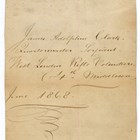 James Adolphus Clark
Quartermaster Serjeant
West London Rifle Volunteers
(4th Middlesex
June 1868.